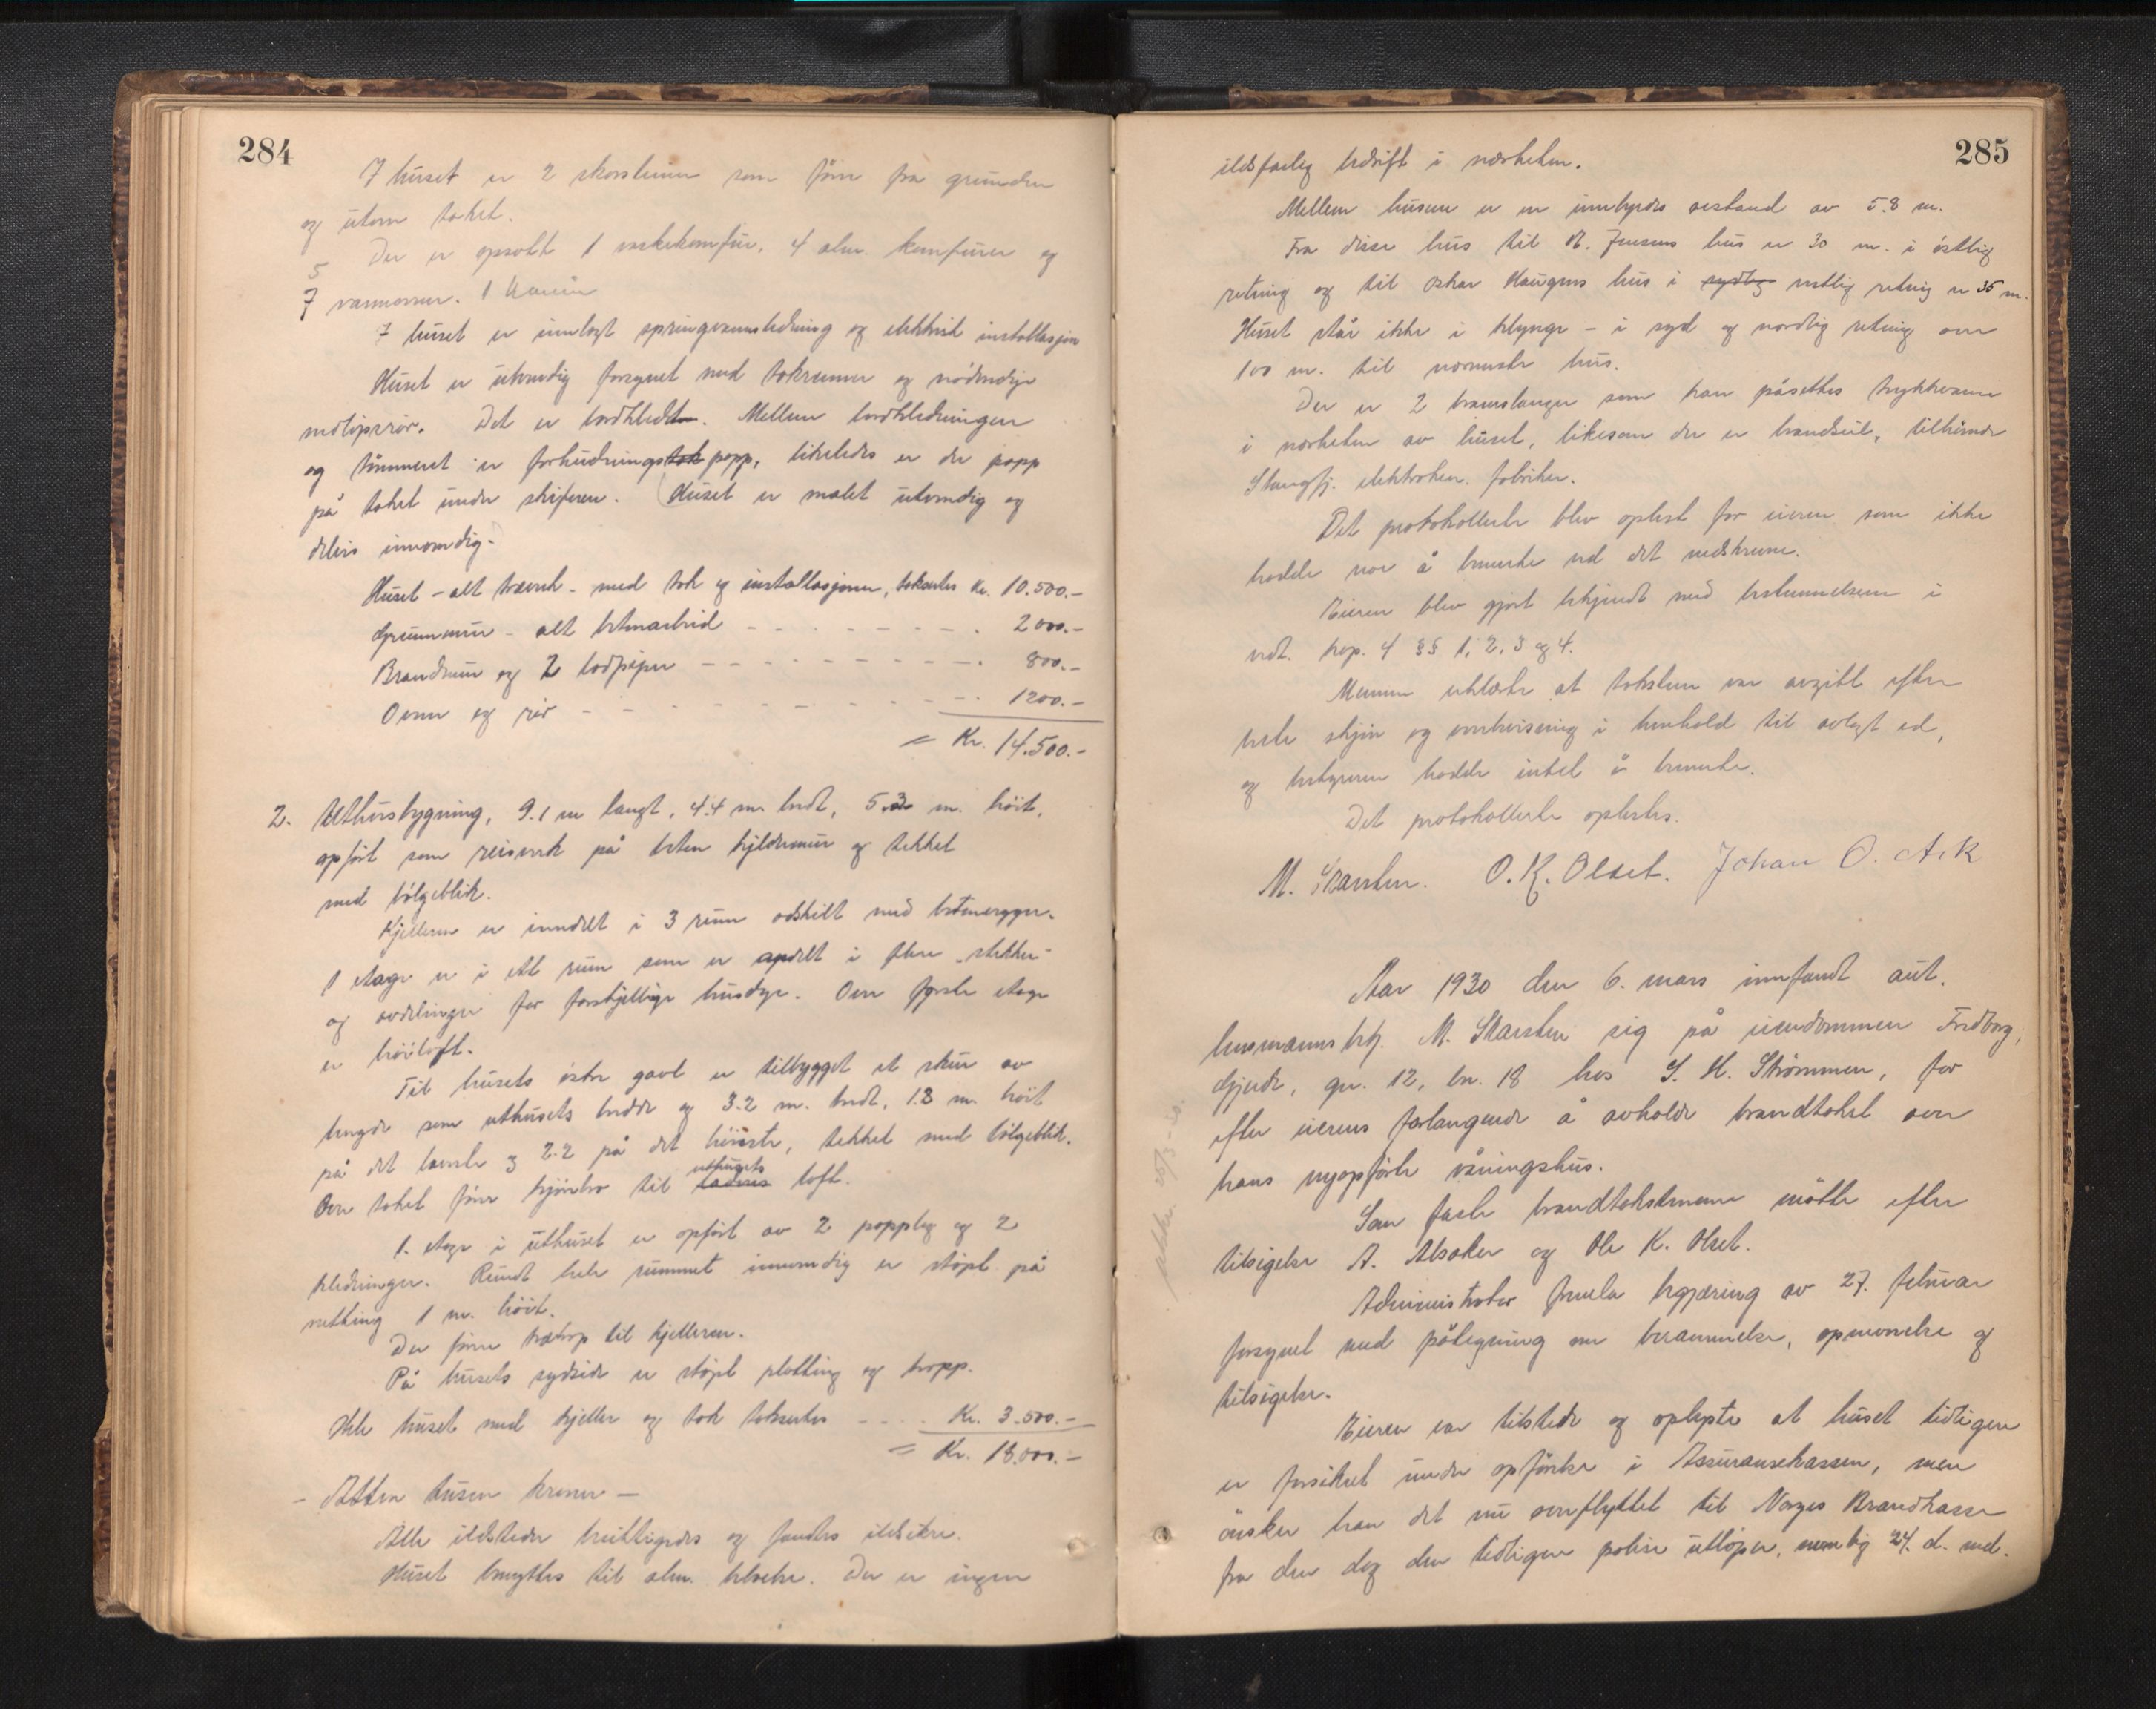 284
I huset er 2 skorsteiner som fører fra grunden
og utom taket.
Der er opsatt 1 vaskekomfur, 4 alm. komfurer og
5
7 varmeovner. 1 kamin
I huset er innlagt springvannsledning og elektrisk installasjon
Huset er utvendig forsynet med takrenner og nødvendige
nedløpsrør. Det er bordkledt. Mellem bordkledningen
og tømmeret er forhudningspapp, likeledes er der papp
på taket under skiferen. Huset er malet utvendig og
delvis innvendig.
Huset - alt treverk - med tak og installasjoner, takseres Kr. 10.500.-
Grunnmur - alt betonarbeid - - - 2000.-
Brandmur og 2 lodpiper - - - 800.-
Ovner og rør - - - 1200.-
= Kr. 14.500.-
2. Uthusbygning, 9.1 m langt, 4.4 m bredt, 5.3 m. høit,
opført som reisverk på beton kjeldermur og tekket
med bølgeblik.
Kjelleren er inndelt i 3 rum adskilt med betonvegger.
1 etage er i ett rum som er opdelt i flere stekker
og avdelinger for forskjellige husdyr. Over første etage
er høiloft.
Til husets østre gavl er tilbygget et skur av
lengde som uthusets bredde og 3.2 m. bredt, 1.8 m. høit
på det laveste og 2.2 på det høieste, tekket med bølgeblik.
Over taket fører kjørebro til uthusets loft.
1. etage i uthuset er opført av 2 papplag og 2
kledninger. Rundt hele rummet innvendig er støpt på
netting 1 m. høit.
Der fører trætrap til kjelleren.
På husets sydside er støpt platting og trapp.
Hele huset med kjeller og tak takseres - - - Kr. 3.500.-
= Kr. 18.000.-
- Atten tusen kroner -
Alle ildsteder besiktigedes og fandtes ildsikre.
Huset benyttes til alm. beboelse. Der er ingen
285
ildsfarlig bedrift i nærheten.
Mellem husene er en innbyrdes avstand av 5.8 m.
Fra disse hus til N. Jensens hus er 30 m. i østlig
retning og til Oskar Haugens hus i sydlig vestlig retning er 35 m.
Huset står ikke i klynge - i syd og nordlig retning over
100 m. til nærmeste hus.
Der er 2 brannslanger som kan påsettes trykkvann
i nærheten av huset, likesom der er brandseil, tilhørende
Stangfj. elektrokem. fabriker.
Det protokollerte blev oplest for eieren som ikke
hadde noe å bemerke ved det nedskrevne.
Eieren blev gjort bekjendt med bestemmelsene i
vedt. kap. 4 §§ 1, 2, 3 og 4.
Mennene erklærte at taksten var avgitt efter
beste skjøn og overbevisning i henhold til avlagt ed,
og bestyreren hadde intet å bemerke.
Det protokollerte oplestes.
M. Starsten. O. K. Olset. Johan O. Ask
Aar 1930 den 6. mars innfandt aut.
lensmannsbtj. M. Starsten sig på eiendommen Fredborg,
Gjerde, gn. 12, bn. 18 hos S. H. Strømmen, for
efter eierens forlangende å avholde brandtakst over
hans nyopførte våningshus.
Som faste brandtakstmenn møtte efter
tilsigelse A. Alsaker og Ole K. Olset.
Administrator fremla begjæring av 27. februar
forsynet med påtegning om berammelse, opnevnelse og
tilsigelse.
Eieren var tilstede og oplyste at huset tidligere
er forsikret under opførelse i Assuransekassen, men
ønsker han det nu overflyttet til Norges Brandkasse
fra den dag den tidligere polise utløper, nemlig 24. d. md.